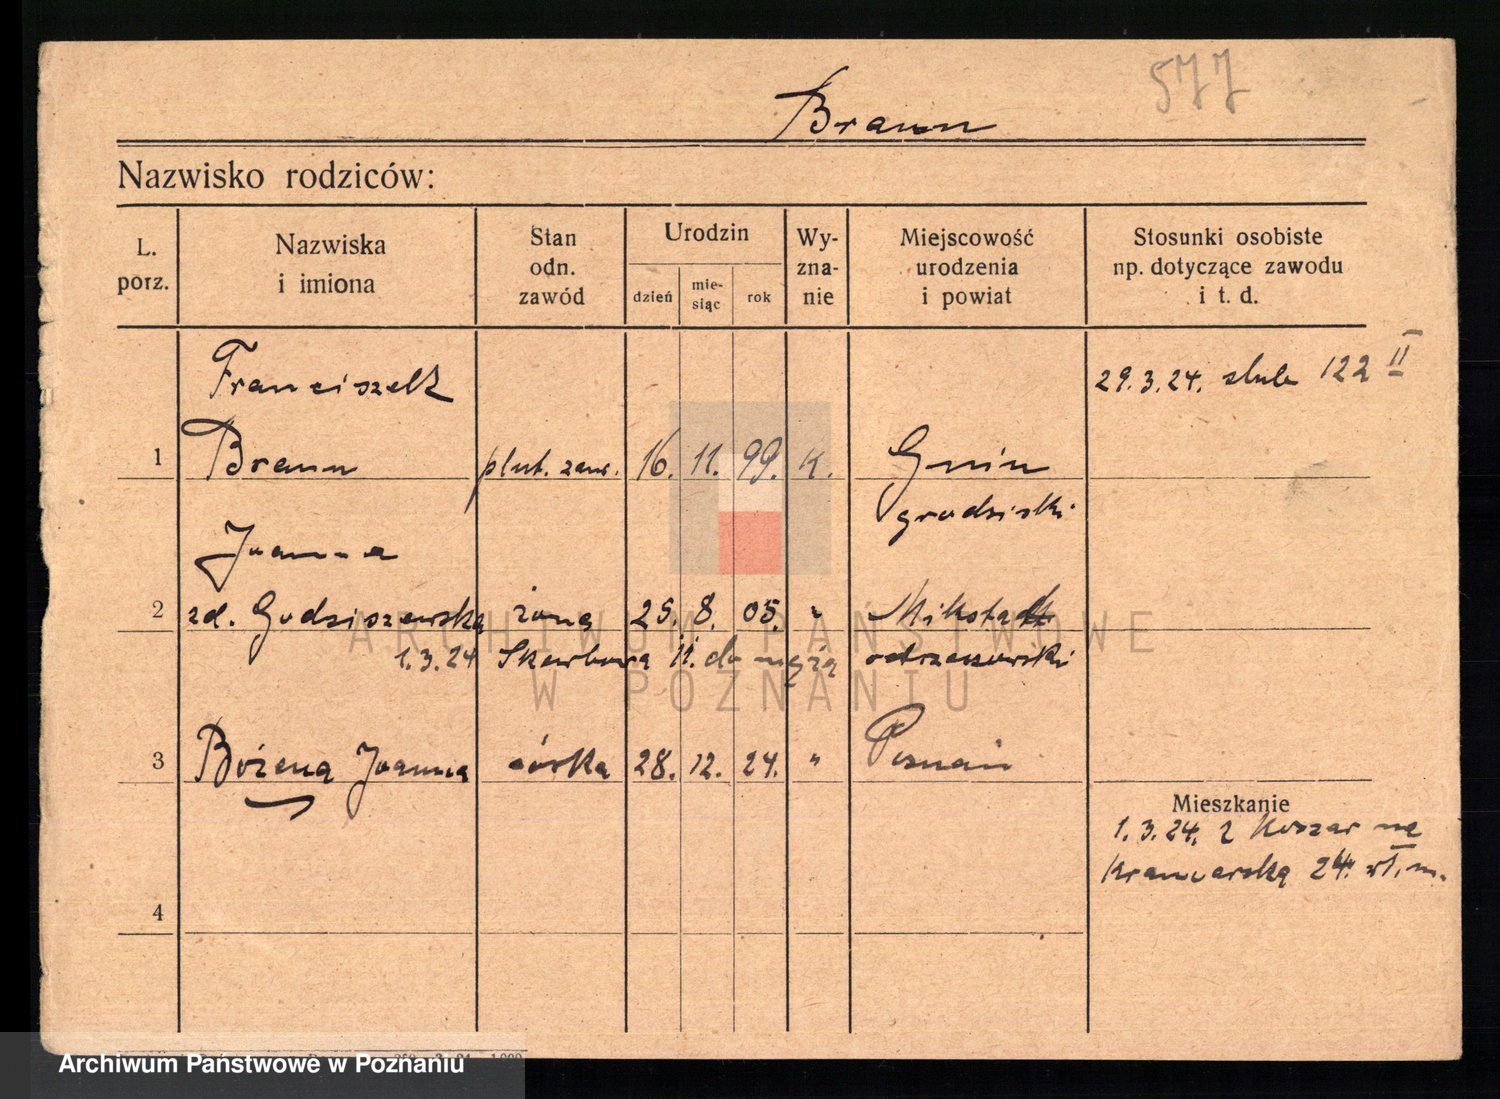 577
Braun
Nazwisko rodziców:
L. porz.
Nazwiska i imiona
Stan odn. zawód
Urodzin
dzień
mie-siąc
rok
Wy-zna-nie
Miejscowość urodzenia i powiat
Stosunki osobiste np. dotyczące zawodu i t. d.
Franciszek
29.3.24. ślub 122 II
1 Braun plut. zaw. 16. 11. 99. k. Gnin
grodziski
Joanna
2 zd. Godziszewska żona 25. 8. 05. " Mikstadt
1.3.24 Skarbowa 11. do męża odrzanowski
3 Bożena Joanna córka 28. 12. 24. " Poznań
Mieszkanie
1.3.24. z Koszar na
Kramarską 24. wł. m.
4
ARCHIWUM PAŃSTWOWE
W POZNANIU
Archiwum Państwowe w Poznaniu